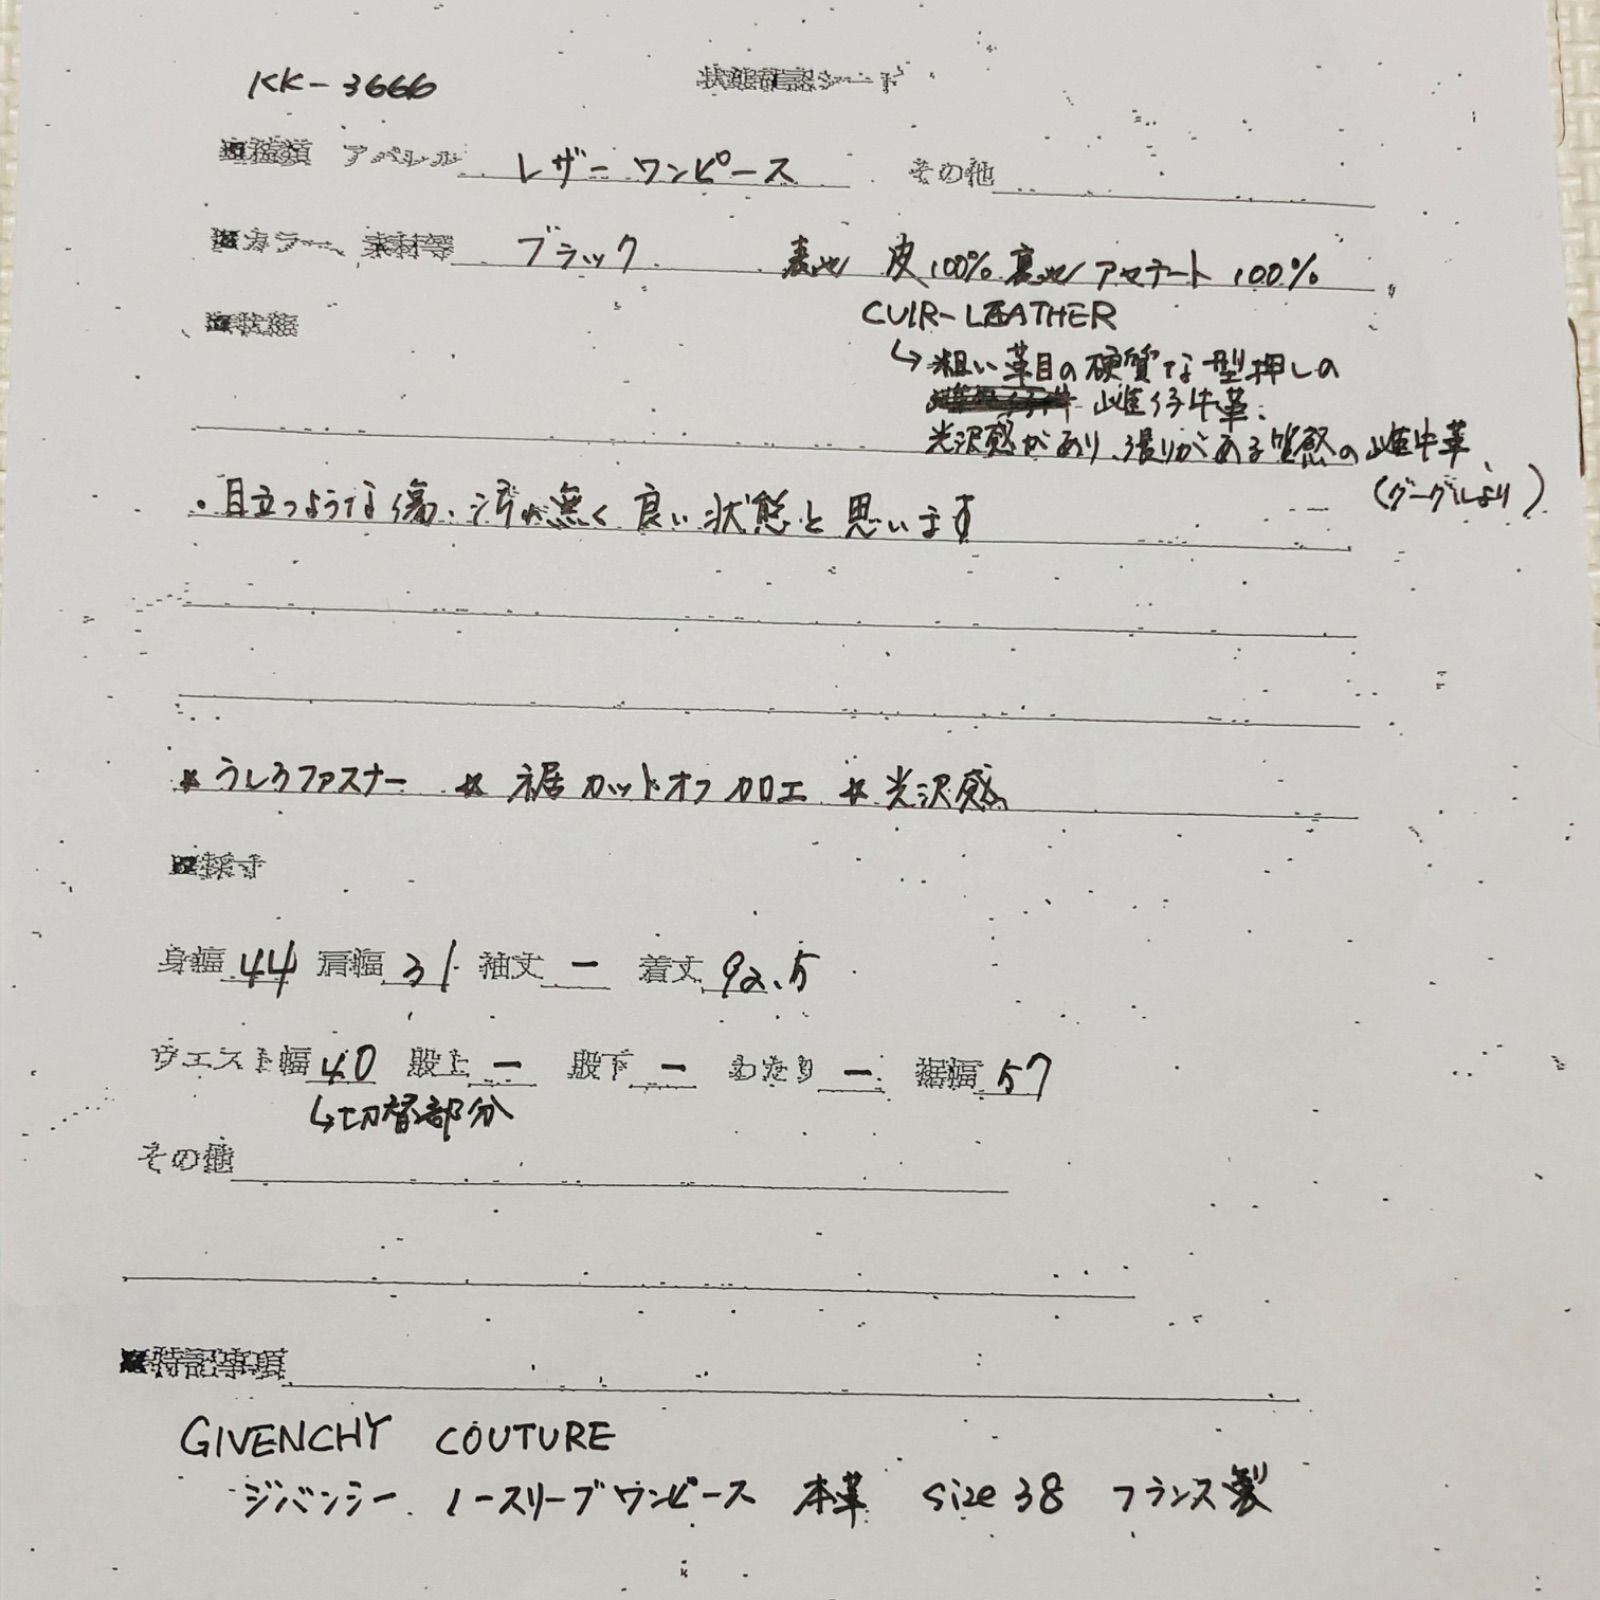 KK-3666 状態確認シート
■種類 アパレル レザーワンピース その他
■カラー、素材等 ブラック 表地 皮100% 裏地 アセテート 100%
■状態 CUIR-LEATHER
↳粗い革目の硬質な型押しの
雌仔牛革.
光沢感があり、張りがある質感の雌牛革
(グーグルより)
・目立つような傷、汚れ無く良い状態と思います
☆うしろファスナー ☆裾カットオフ加工 ☆光沢感
■採寸
身幅 44 肩幅 31 袖丈 ー 着丈 92.5
ウエスト幅 40 股上 ー 股下 ー わたり ー 裾幅 57
↳切替部分
その他
■特記事項
GIVENCHY COUTURE
ジバンシー ノースリーブワンピース 本革 size 38 フランス製